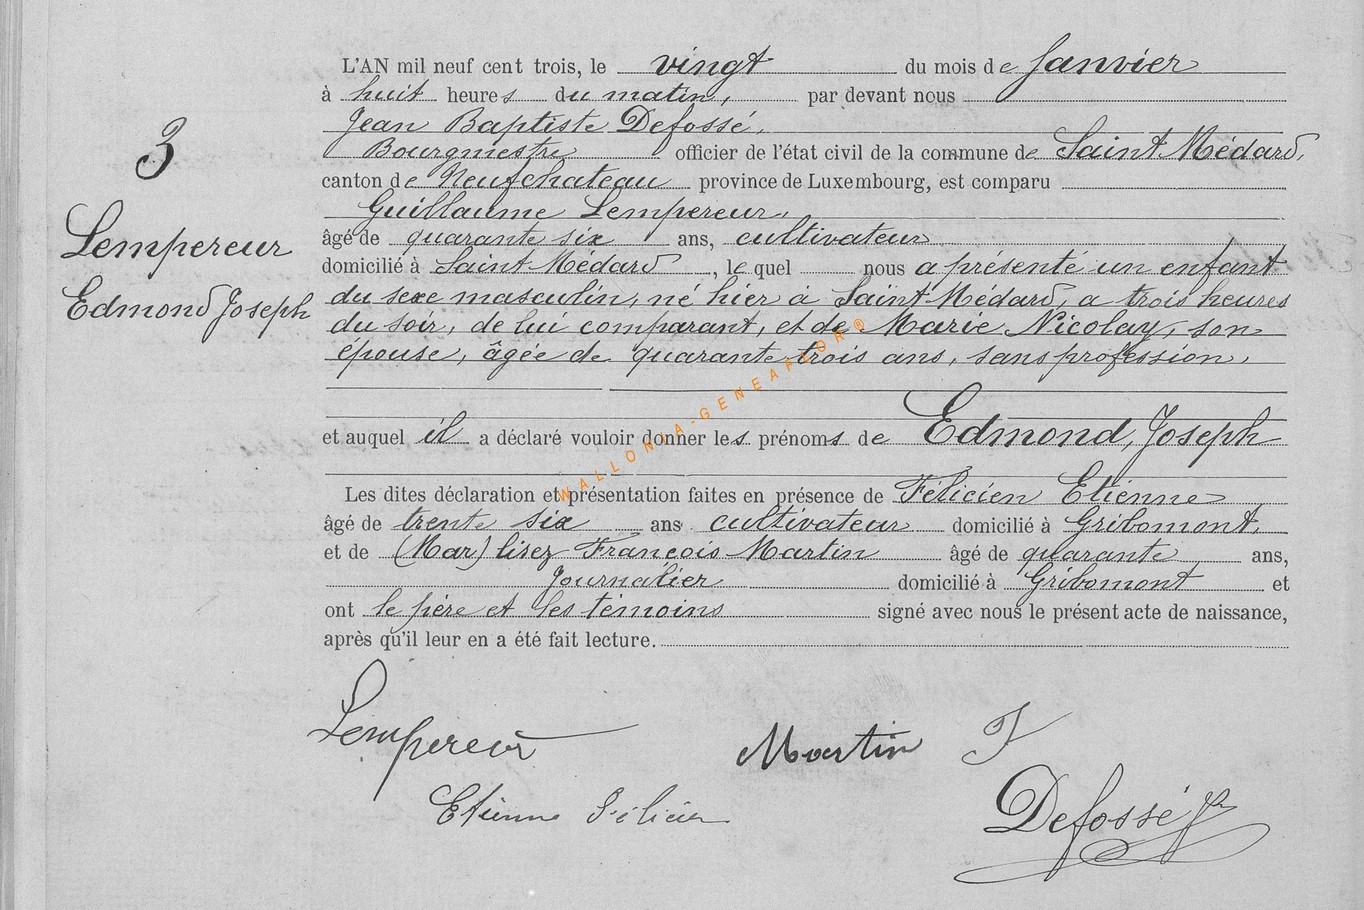 3
Lempereur
Edmond Joseph
L'AN mil neuf cent trois, le vingt du mois de Janvier
à huit heures du matin, par devant nous
Jean Baptiste Defossé,
Bourgmestre officier de l'état civil de la commune de Saint Médard,
canton de Neufchateau province de Luxembourg, est comparu
Guillaume Lempereur,
âgé de quarante six ans, cultivateur
domicilié à Saint Médard, le quel nous a présenté un enfant
du sexe masculin, né hier à Saint Médard, a trois heures
du soir, de lui comparant, et de Marie Nicolay, son
épouse, âgée de quarante trois ans, sans profession,
et auquel il a déclaré vouloir donner les prénoms de Edmond, Joseph
Les dites déclaration et présentation faites en présence de Félicien Etienne
âgé de trente six ans cultivateur domicilié à Gribomont,
et de (Mar) lisez François Martin âgé de quarante ans,
Journalier domicilié à Gribomont et
ont le père et les témoins signé avec nous le présent acte de naissance,
après qu'il leur en a été fait lecture.
Lempereur
Martin F
Etienne Félicien
Defossé
WALLONIA-GENEAFLOR®